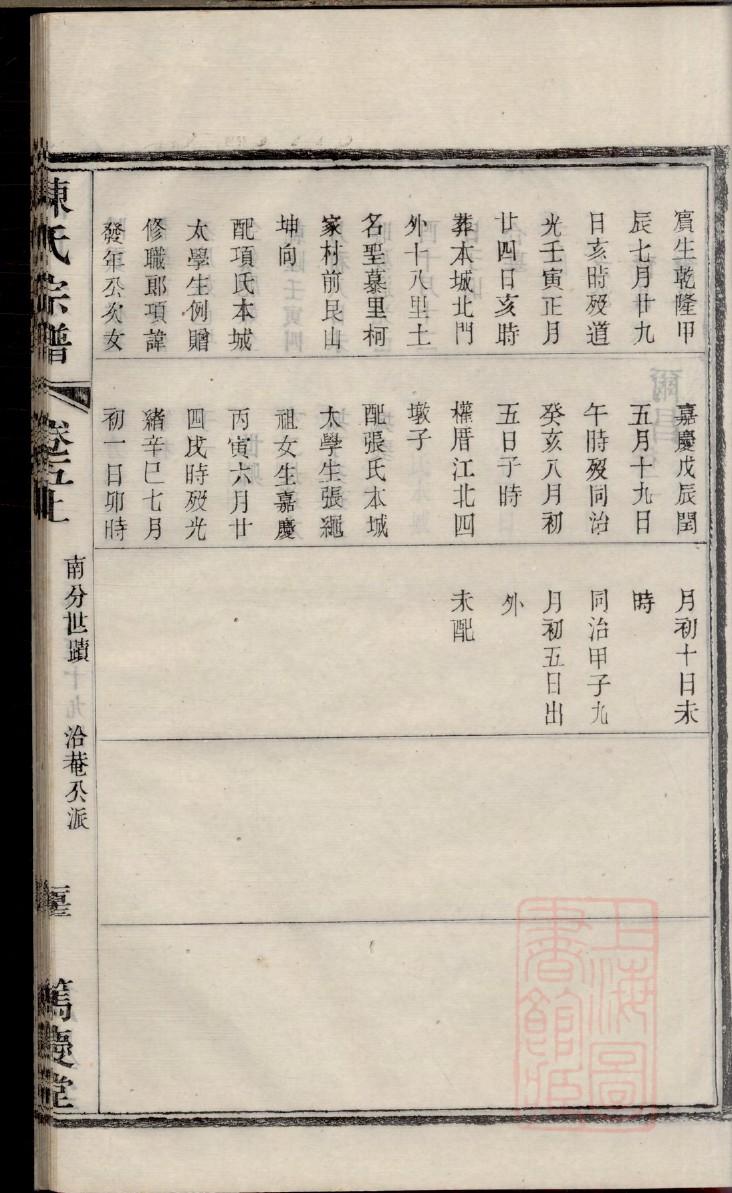 賔生乾隆甲
辰七月廿九
日亥時殁道
光壬寅正月
廿四日亥時
葬本城北門
外十八里土
名聖墓里柯
家村前艮山
坤向
配項氏本城
太學生例贈
修職郎項諱
發年公次女
嘉慶戊辰閏
五月十九日
午時殁同治
癸亥八月初
五日子時
權厝江北四
墩子
配張氏本城
太學生張繩
祖女生嘉慶
丙寅六月廿
四戌時殁光
緒辛巳七月
初一日卯時
月初十日未
時
同治甲子九
月初五日出
外
未配
陳氏宗譜
卷五上
南分世蹟十九
洽菴公派
篤慶堂
上海圖
書館藏